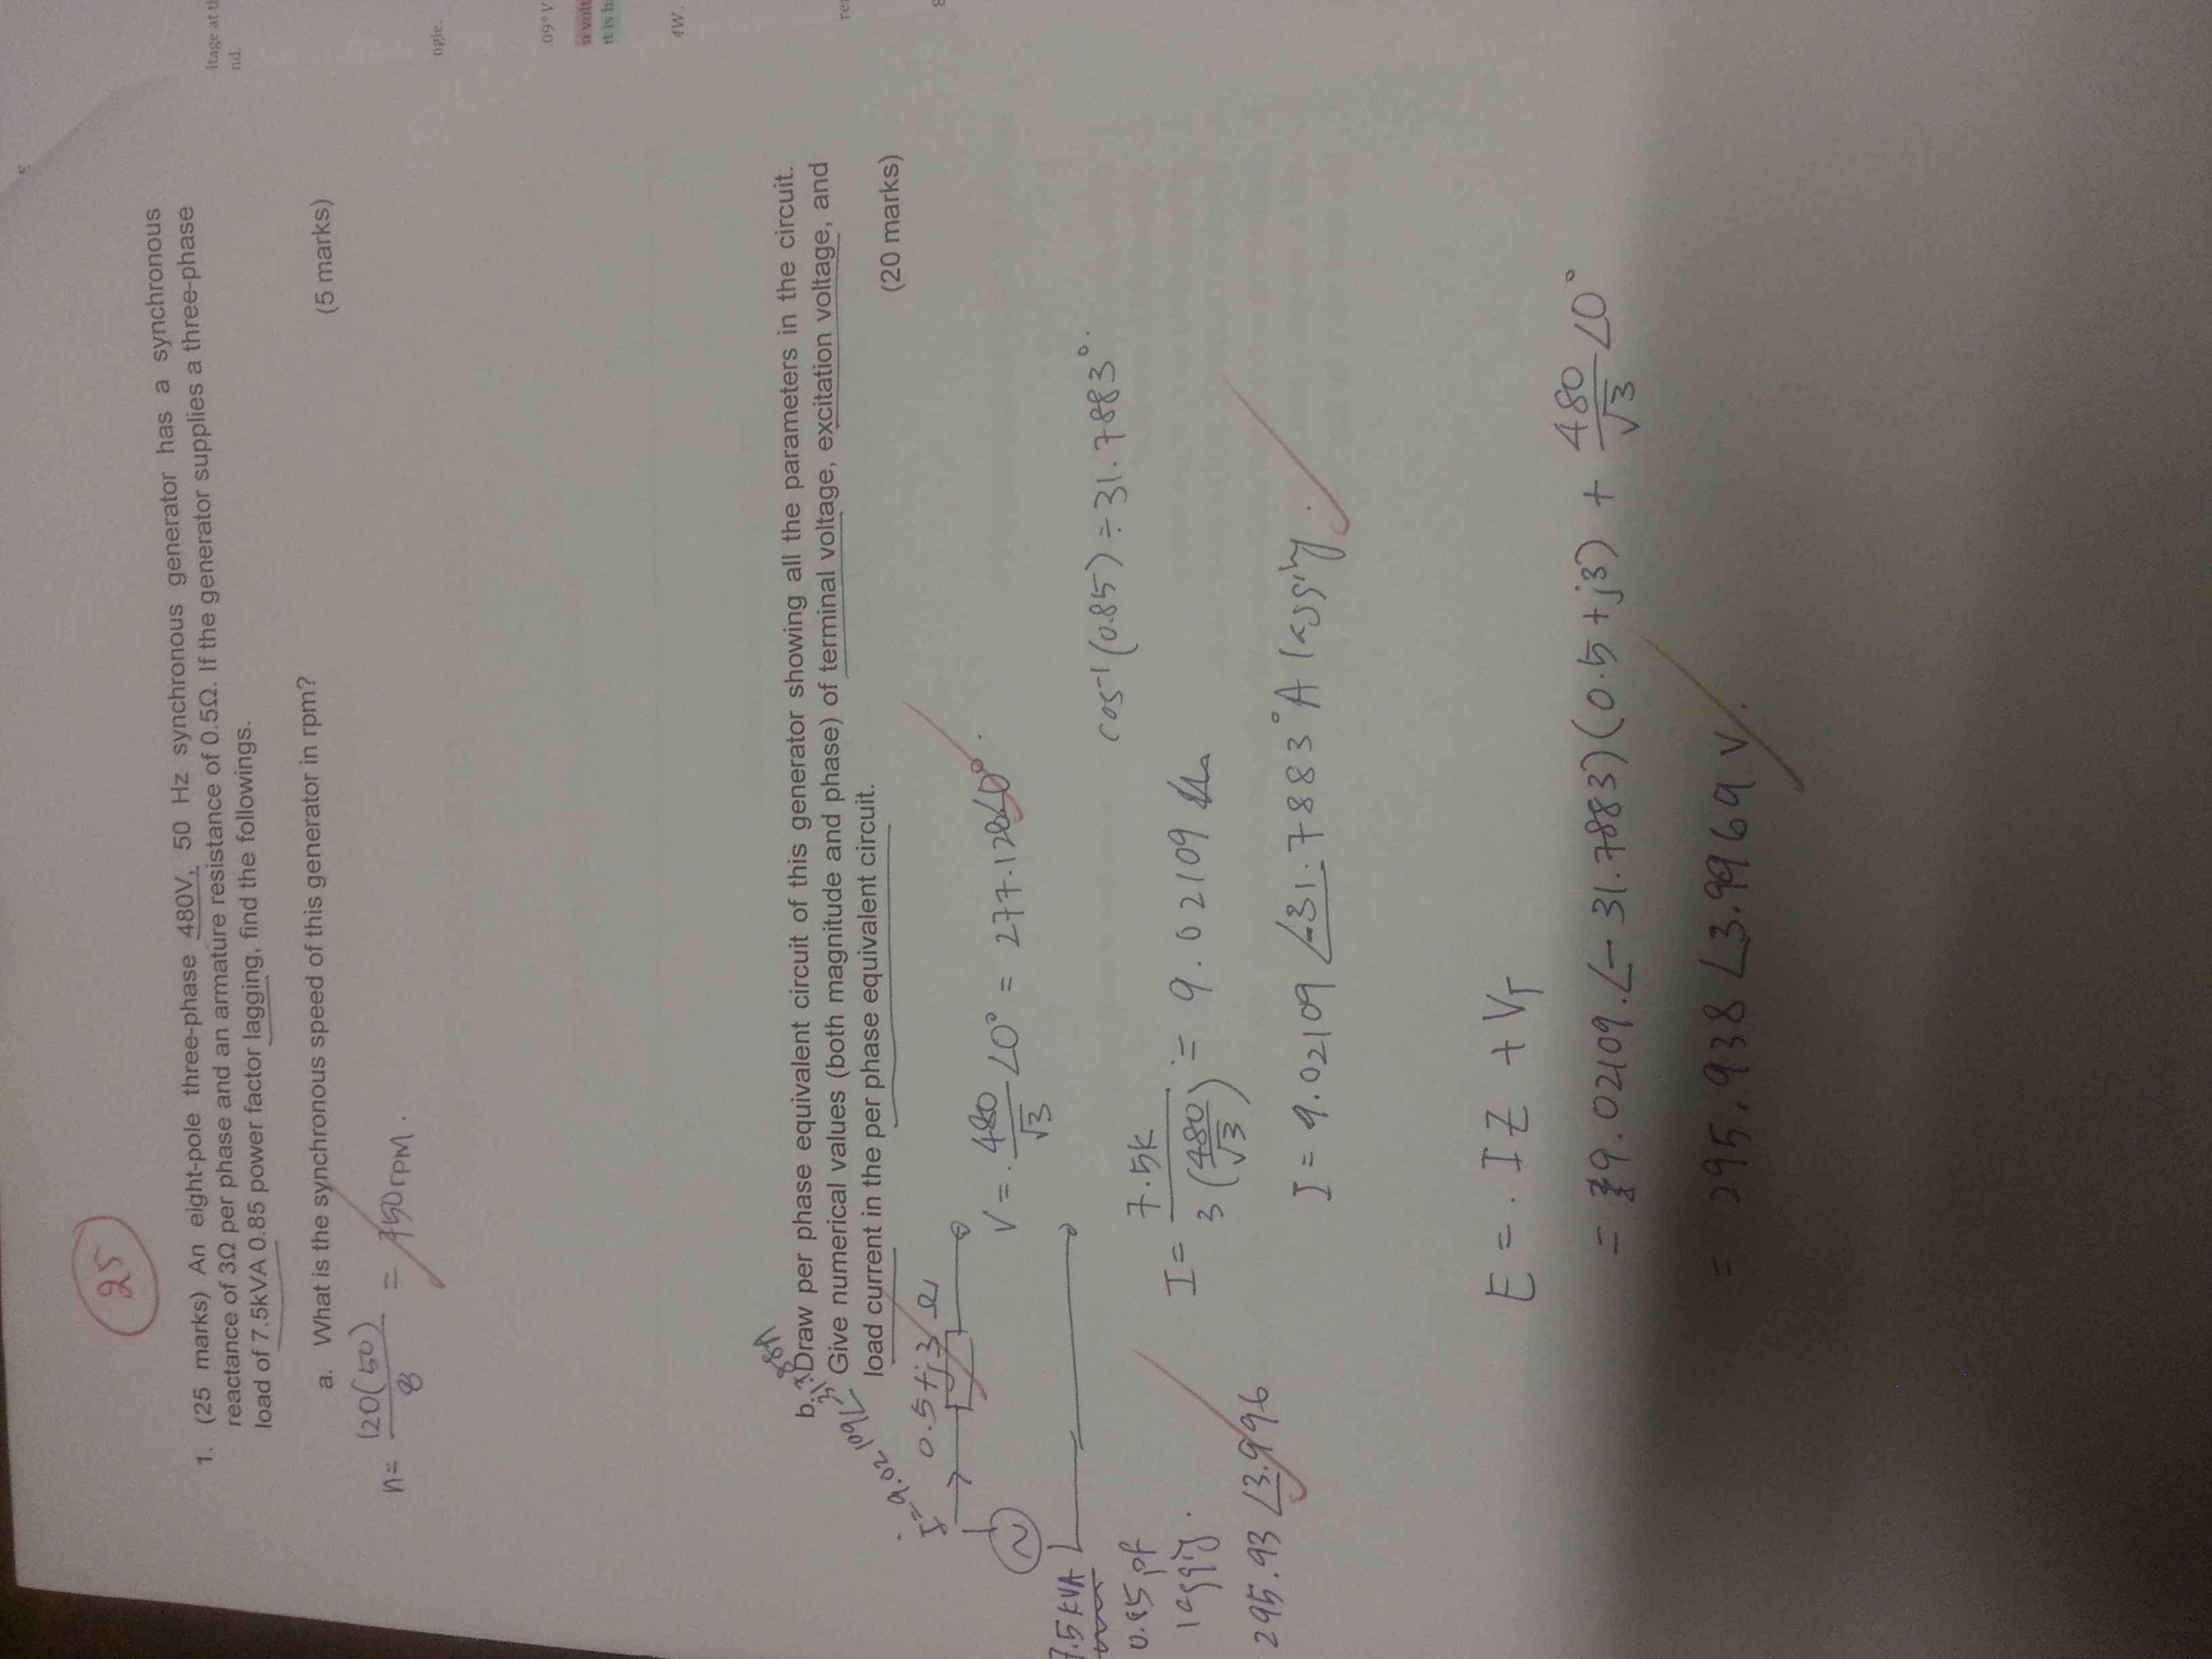 ltage at t
nd.
ngle.
.09° V
n volt
it is h
4W.
25
1. (25 marks) An eight-pole three-phase 480V, 50 Hz synchronous generator has a synchronous
reactance of 3Ω per phase and an armature resistance of 0.5Ω. If the generator supplies a three-phase
load of 7.5kVA 0.85 power factor lagging, find the followings.
a. What is the synchronous speed of this generator in rpm?
(5 marks)
n = 120(50) / 8 = 750 rpm.
b. Draw per phase equivalent circuit of this generator showing all the parameters in the circuit.
Give numerical values (both magnitude and phase) of terminal voltage, excitation voltage, and
load current in the per phase equivalent circuit.
(20 marks)
I = 9.02109∠
0.5+j3 Ω
V = 480/√3 ∠0° = 277.128∠0°.
7.5kVA
0.85 pf
lagging.
295.93 ∠3.996
cos⁻¹(0.85) = 31.7883°.
I = 7.5k / 3(480/√3) = 9.02109
I = 9.02109 ∠-31.7883° A lagging.
E = IZ + V_T
= 9.02109∠-31.7883)(0.5+j3) + 480/√3 ∠0°
= 295.938 ∠3.9969 V.